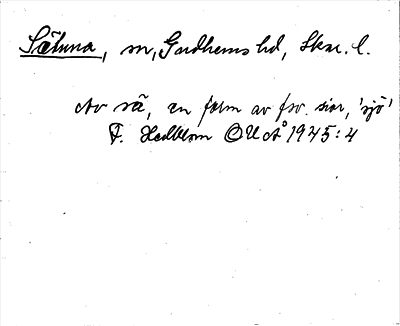 Sätuna, sn, Gudhems hd, Skar. l.
Av sä, en form av fsv. sior, 'sjö'
F. Hedblom OUÅ 1945:4